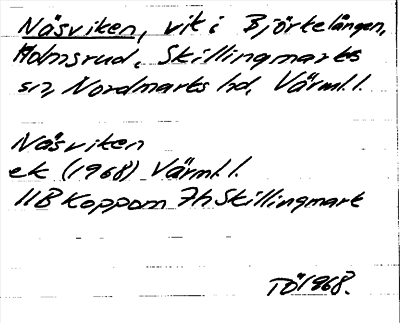 Näsviken, vik i Björtelången,
Holmsrud, Skillingmarks
sn, Nordmarks hd, Värml. l.
Näsviken
ek (1968) Värml. l.
11B Koppom 7h Skillingmark
TÖ 1968.